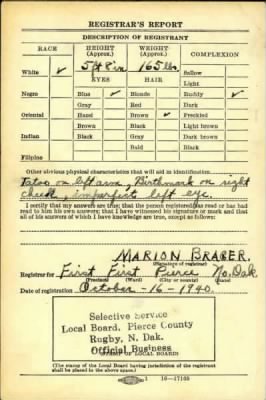 REGISTRAR'S REPORT
DESCRIPTION OF REGISTRANT
RACE HEIGHT (Approx.) WEIGHT (Approx.) COMPLEXION
White ✓ 5 ft 8 in 165 lbs. Sallow
Light
EYES HAIR
Negro Blue ✓ Blonde Ruddy ✓
Gray Red Dark
Oriental Hazel Brown ✓ Freckled
Brown Black Light brown
Indian Black Gray Dark brown
Bald Black
Filipino
Other obvious physical characteristics that will aid in identification
Tatoo on left arm, Birthmark on right
cheek, imperfect left eye.
I certify that my answers are true; that the person registered has read or has had
read to him his own answers; that I have witnessed his signature or mark and that
all of his answers of which I have knowledge are true, except as follows:
MARION BRAGER.
(Signature of registrar)
Registrar for First First Pierce No. Dak
(Precinct) (Ward) (City or county) (State)
Date of registration October -16-1940.
Selective Service
Local Board, Pierce County
Rugby, N. Dak.
Official Business
(STAMP OF LOCAL BOARD)
(The stamp of the Local Board having jurisdiction of the registrant
shall be placed in the above space.)
16-17105